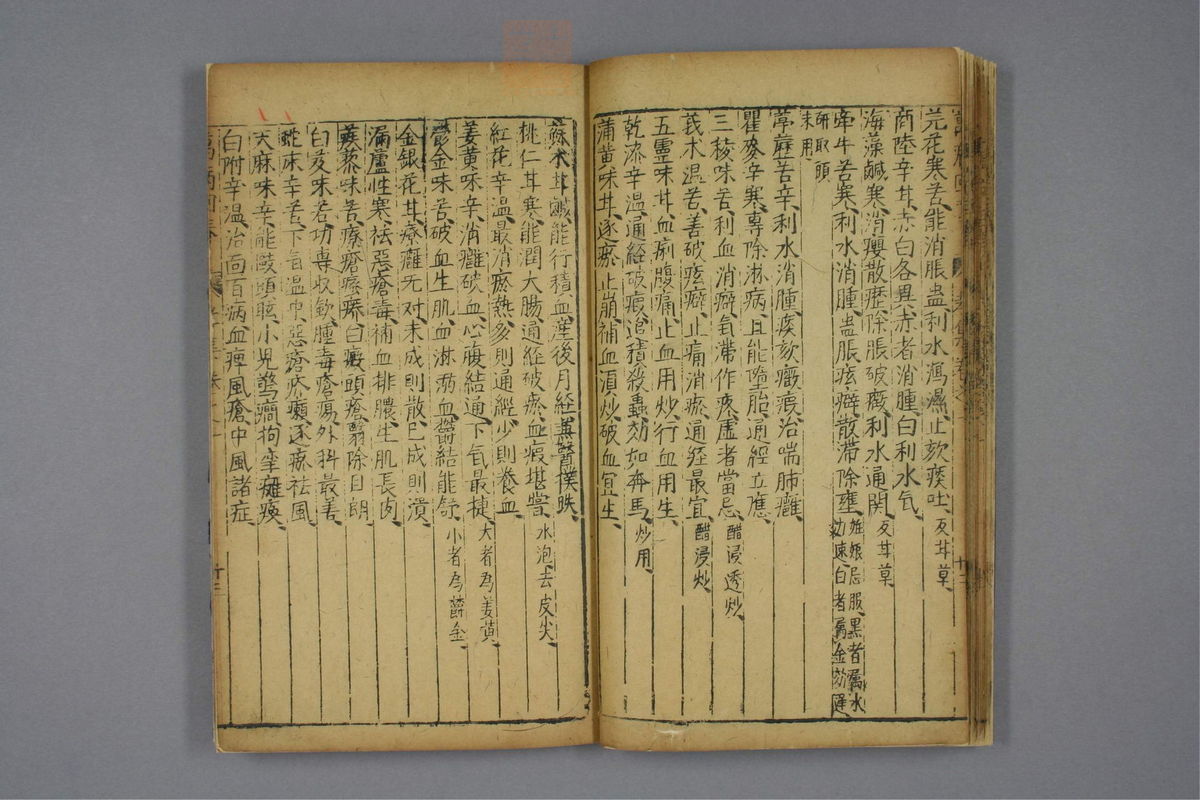 芫花寒苦能消脹蠱利水瀉濕止欬痰吐反甘草
商陸辛甘赤白各異赤者消腫白利水气
海藻鹹寒消癭散癧除脹破癥利水通関反甘草
牽牛苦寒利水消腫蠱脹痃癖散滞除壅妊娠忌服黒者属水
効速白者属金効遲
研取頭
末用
葶藶苦辛利水消腫痰欬癥瘕治喘肺癰
瞿麥辛寒專除淋病且能墮胎通經立應
三稜味苦利血消癖氣滞作疼虚者當忌醋浸透炒
莪术温苦善破痃癖止痛消瘀通經最宜醋浸炒
五靈味甘血痢腹痛止血用炒行血用生
乾漆辛温通經破瘕追積殺蟲効如奔馬炒用
蒲黄味甘逐瘀止崩補血須炒破血宜生
蘇木甘鹹能行積血産後月經兼醫撲跌
桃仁甘寒能潤大腸通經破瘀血瘕堪嘗水泡去皮尖
紅花辛温最消瘀熱多則通經少則養血
姜黄味辛消癰破血心腹結通下氣最捷大者為姜黄
鬱金味苦破血生肌血淋溺血鬱結能舒小者為鬱金
金銀花甘療癰无对未成則散已成則潰
漏蘆性寒祛惡瘡毒補血排膿生肌長肉
蒺藜味苦療瘡瘙癢白癜頭瘡翳除目朗
白芨味苦功専收歛腫毒瘡瘍外科最善
蛇床辛苦下气温中惡瘡疥癩逐瘀祛風
天麻味辛能驅頭眩小兒驚癇拘攣癱瘓
白附辛温治面百病血痺風瘡中風諸症
萬病回春
十三